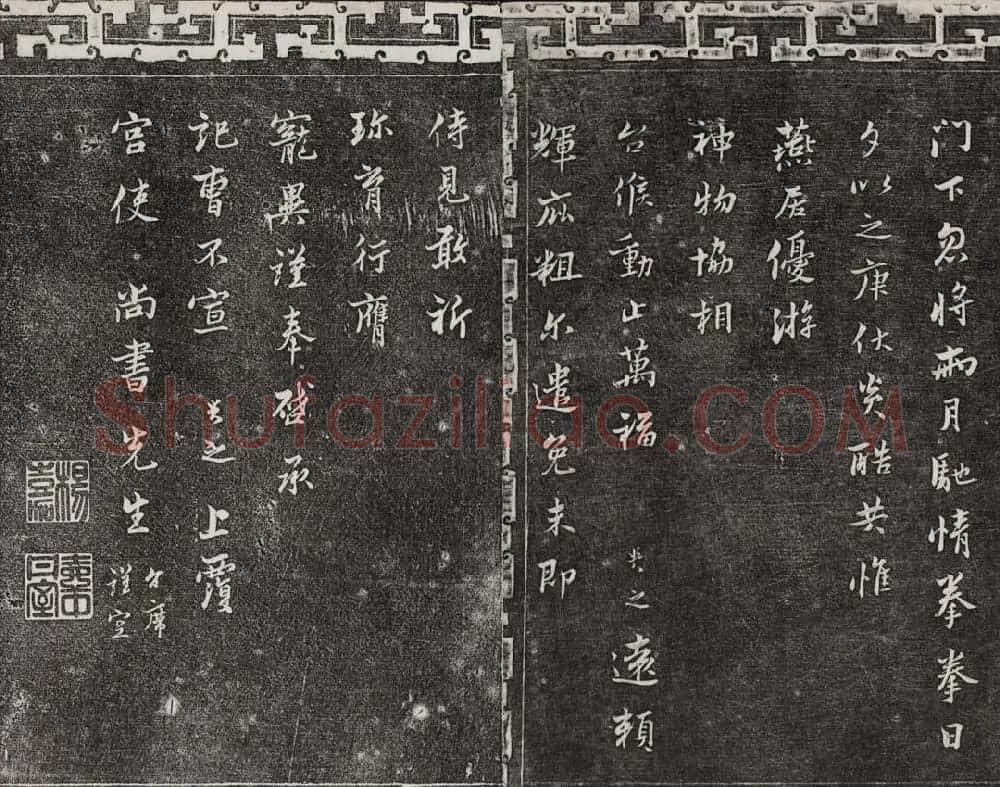 门下忽将兩月馳情拳拳日
夕以之庚伏炎酷共惟
燕居優游
神物協相
台候動止萬福 之遠賴
輝庇粗尔遣免未即
侍見敢祈
珎育行膺
寵異謹奉啓承
記曹不宣 之上覆
宫使尚書先生 台席
謹空
Shufaziliao.COM